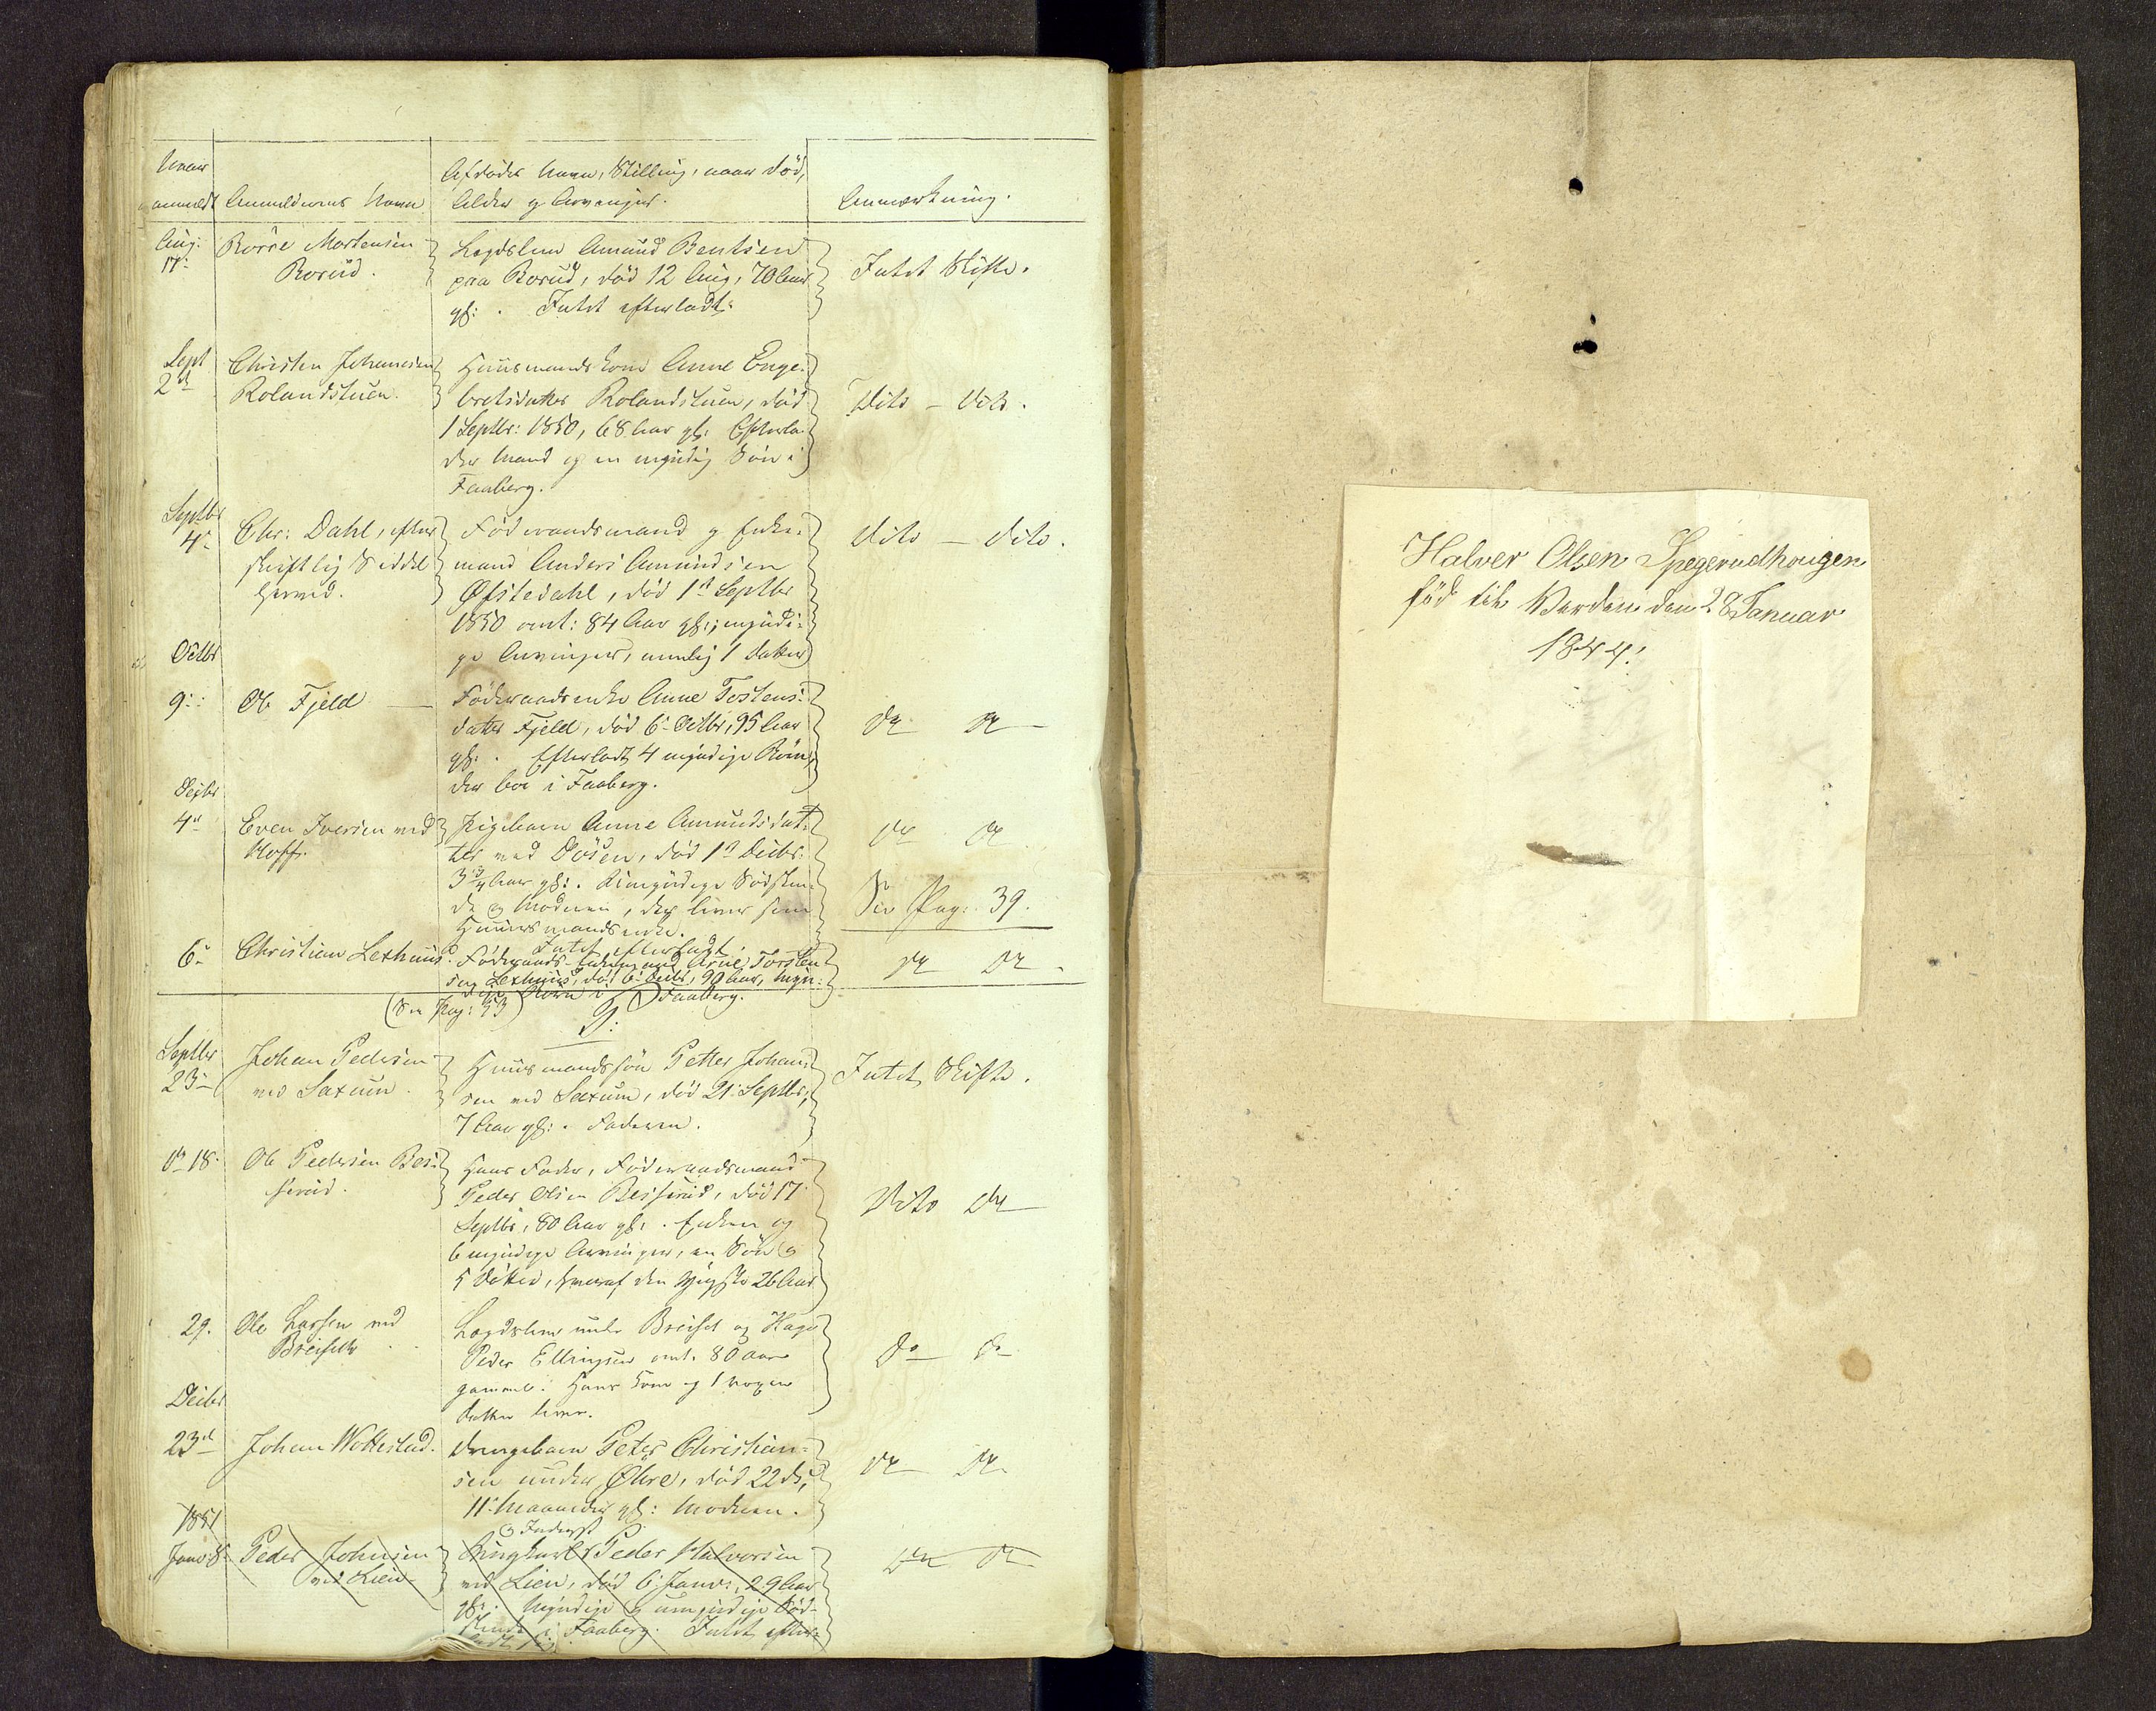 Naar
anmeldt
Anmelderens Navn
Afdødes Navn, Stilling, naar død,
Alder og Arvinger.
Anmærkning.
Aug:
17
Borre Mortensen
Borud.
Lægdslem Amund Bentsen
paa Borud, død 12 Aug, 70 Aar
gl: . Intet efterladt.
Intet Skifte.
Sept
2d
Christen Johannesen
Rolandstuen.
Huusmandskone Anne Enge-
bretsdatter Rolandstuen, død
1 Septbr: 1850, 68 Aar gl: Efterla-
der Mand og en myndig Søn i
Faaberg.
Dito - Dito.
Septbr
4
Chr: Dahl, efter
skriftlig Seddel
herved.
Føderaadsmand og Enke-
mand Anders Amundsen
Øfstedahl, død 1st Septbr
1850 omt: 84 Aar gl:; myndi-
ge Arvinger, nemlig 1 datter
dito - dito.
Octbr
9
Ole Fjeld
Føderaadsenke Anne Tostens-
datter Fjeld, død 6 Octbr, 95 Aar
gl: . Efterladt 4 myndige Børn,
der boe i Faaberg.
do do
Decbr
4
Even Iversen ved
Hoff.
Pigebarn Anne Amundsdat-
ter ved Døsen, død 1st Decbr:
3 3/4 Aar gl: . Umyndige Sødsken-
de & Moderen, der lever som
Huusmandsenke.
Intet efterladt.
do do
See Pag: 39.
6
Christian Lethuus.
Føderaads-Enkemand Arne Torsten-
sen Lethuus, død 6 Decbr, 90 Aar, myn-
dige Børn i Faaberg.
do do
(See Pag: 33)
P:
Septbr
23
Johan Pedersen
ved Saxum.
Huusmandssøn Petter Johan-
sen ved Saxum, død 21 Septbr,
7 Aar gl: . Faderen.
Intet Skifte.
do 18
Ole Pedersen Bes-
serud.
Hans Fader, Føderaadsmand
Peder Olsen Besserud, død 17
Septbr, 80 Aar gl: . Enken og
6 myndige Arvinger, en Søn &
5 døttre, hvoraf den yngste 26 Aar
Dito do
29.
Ole Larsen ved
Breiseth
Lægdslem under Breiset og Hage
Peder Ellingsen omt. 80 aar
gammel. Hans Kone og 1 voxen
datter lever.
do do
Decbr
23d
Johan Wottestad.
Drengebarn Peter Christian-
sen under Øhre, død 22 ds,
11 Maaneder gl: Moderen.
do do
1851
Janr 8
Peder Johnsen
ved Lien
& Inderst
Ungkarl Peder Halvorsen
ved Lien, død 6 Janr:, 29 Aar
gl: . Myndige & umyndige Sød-
skende i Faaberg. Intet efter-
ladt sig.
do do
Halver Olsen Spegerudhougen
föd till Werden den 28 Januar
1844!